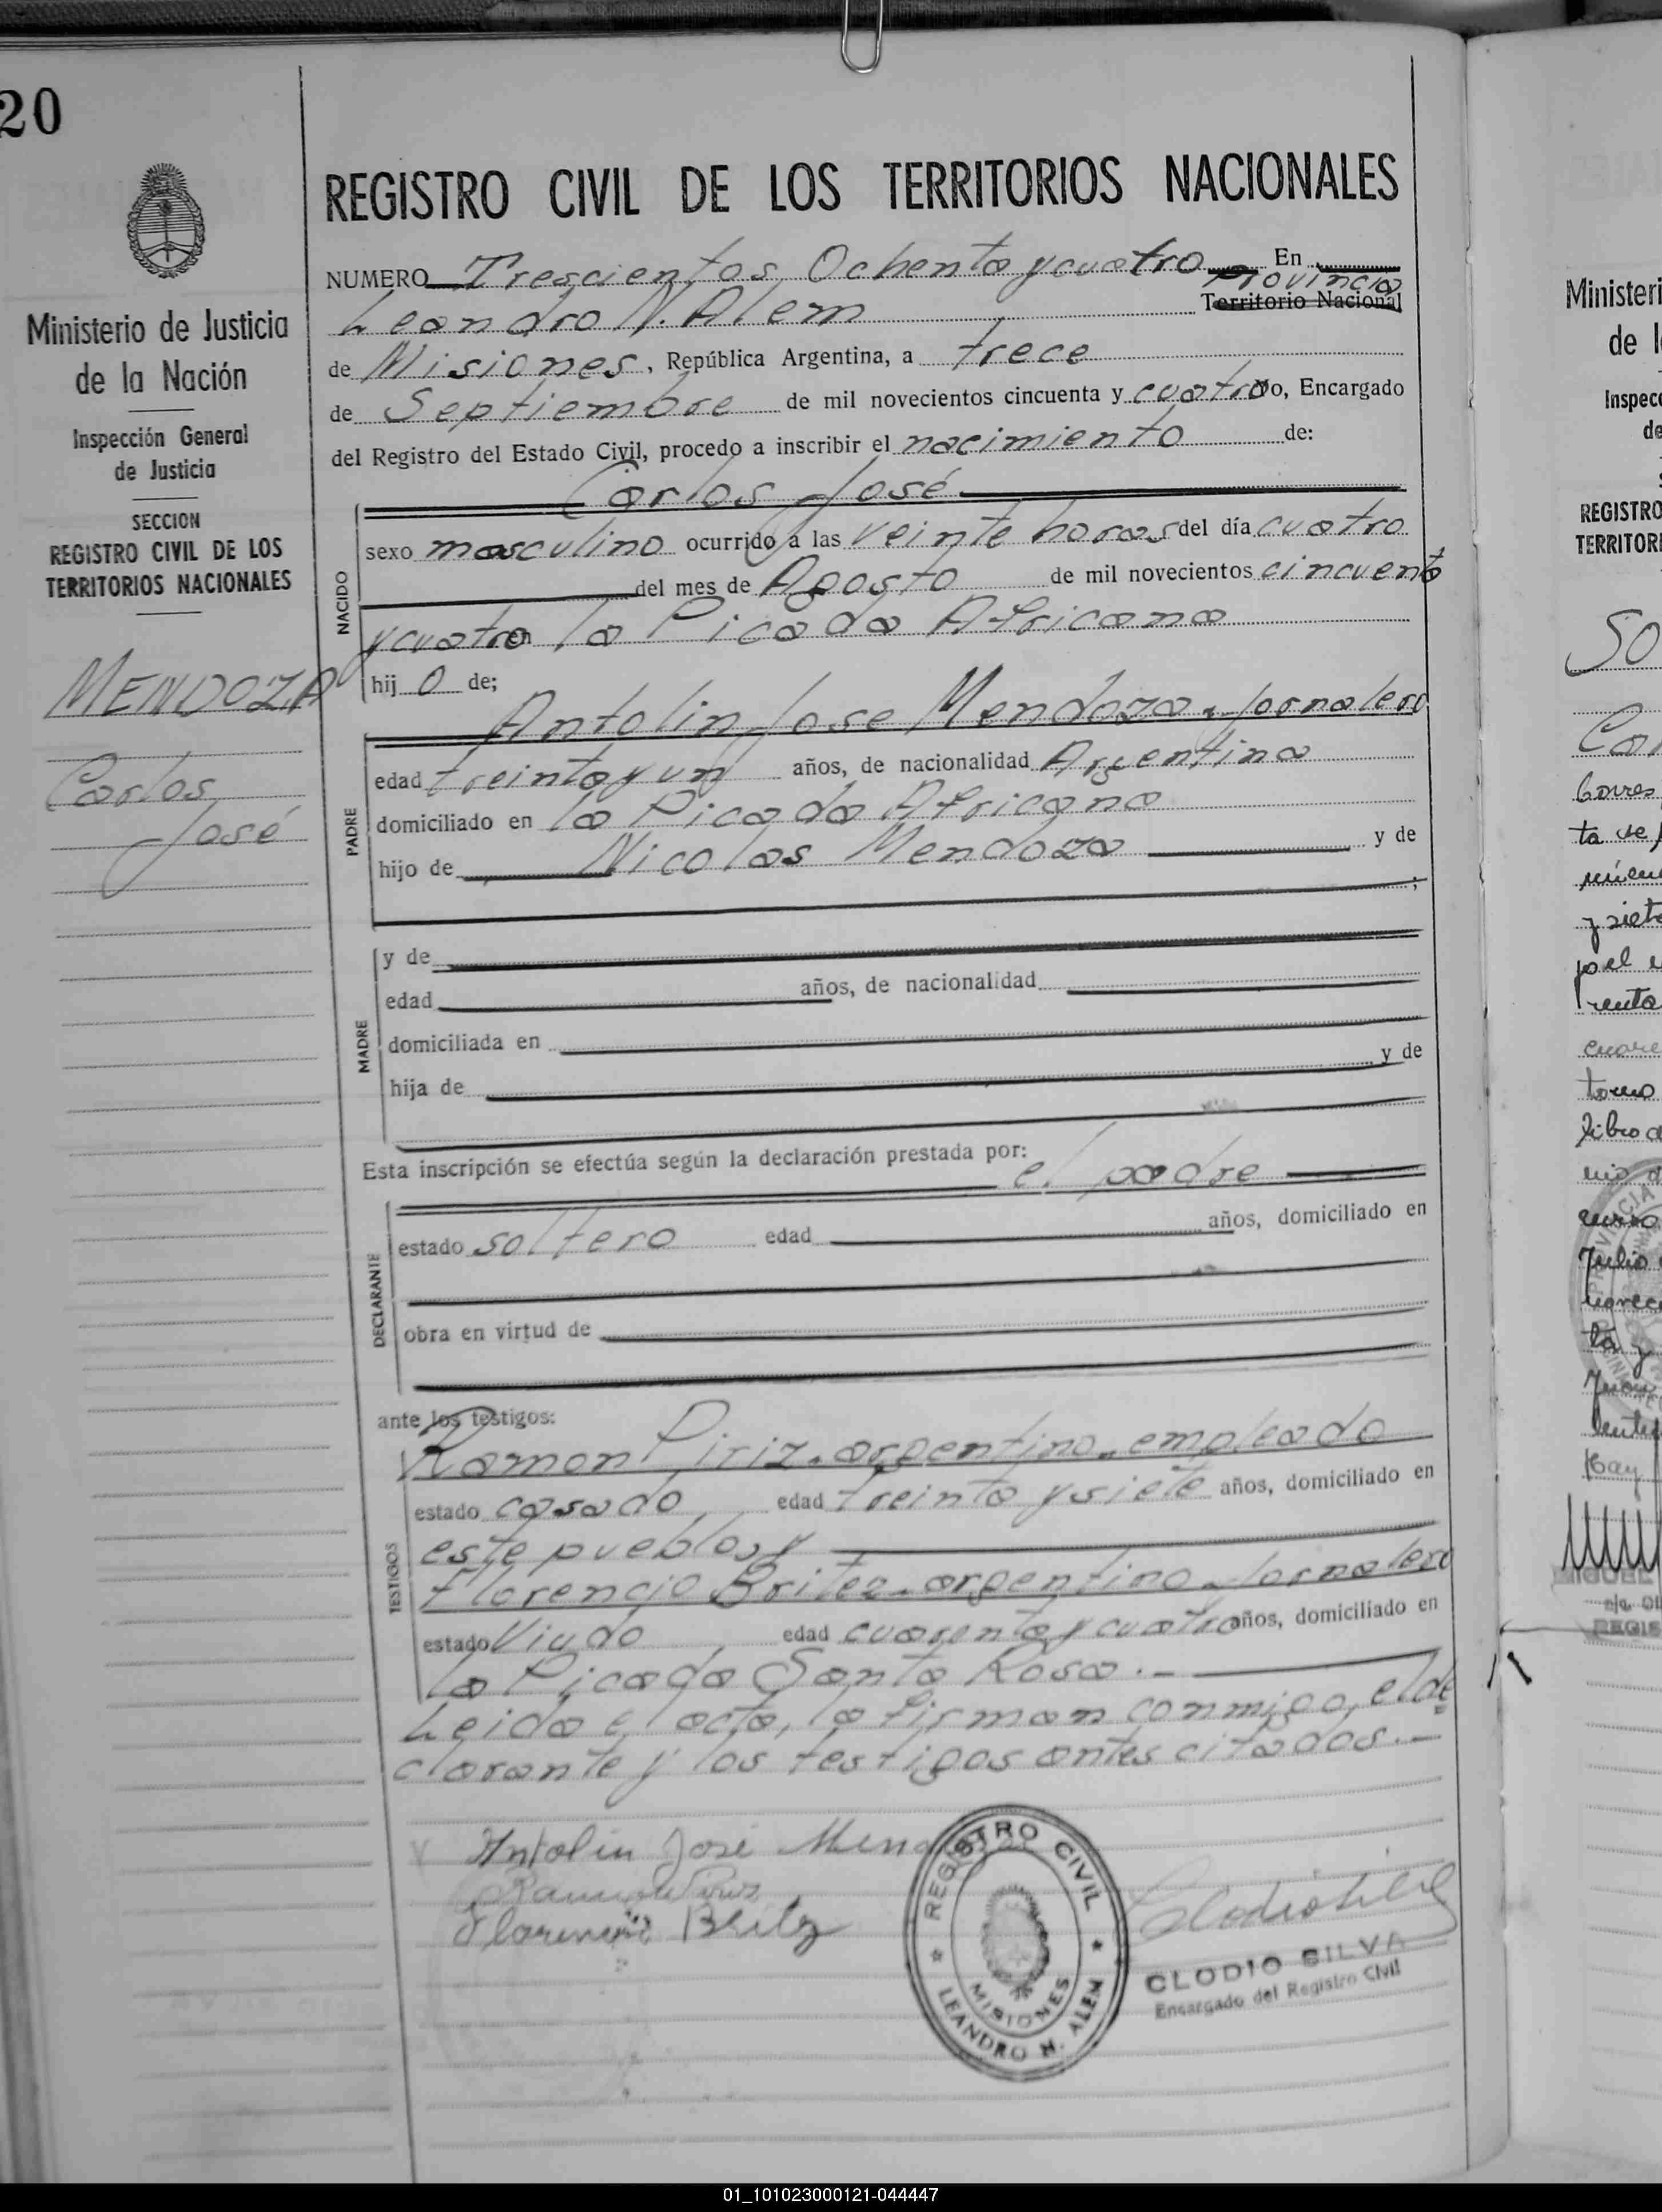 20
Ministerio de Justicia
de la Nación
Inspección General
de Justicia
SECCION
REGISTRO CIVIL DE LOS
TERRITORIOS NACIONALES
MENDOZA
Carlos
José
REGISTRO CIVIL DE LOS TERRITORIOS NACIONALES
NUMERO Trescientos Ochenta y cuatro En
Leandro N. Alem provincia Territorio Nacional
de Misiones, República Argentina, a trece
de Septiembre de mil novecientos cincuenta y cuatro yo, Encargado
del Registro del Estado Civil, procedo a inscribir el nacimiento de:
Carlos José
NACIDO
sexo masculino ocurrido a las veinte horas del día cuatro
del mes de Agosto de mil novecientos cincuenta
y cuatro en la Picada Africana
hij o de;
Antolin Jose Mendoza. Jornalero
PADRE
edad treinta y un años, de nacionalidad Argentina
domiciliado en la Picada Africana
hijo de Nicolas Mendoza y de
;
MADRE
y de
edad años, de nacionalidad
domiciliada en
hija de y de
Esta inscripción se efectúa según la declaración prestada por:
el padre
DECLARANTE
estado soltero edad años, domiciliado en
obra en virtud de
ante los testigos:
Ramon Piriz. argentino. empleado
TESTIGOS
estado casado edad treinta y siete años, domiciliado en
este pueblo, y
Florencio Britez. argentino. Jornalero
estado Viudo edad cuarenta y cuatro años, domiciliado en
la Picada Santa Rosa.-
Leida el acta, la firman conmigo, el de
clarante y los testigos antes citados.-
Antolin José Mend
Florencio Britz
REGISTRO CIVIL
MISIONES
LEANDRO N. ALEM
CLODIO SILVA
Encargado del Registro Civil
Ministeri
de l
Inspec
de
REGISTRO
TERRITORI
SO
ta se
y siete
pel
renta
tomo
libro d
Julio
MIGUEL
REGIS
01_101023000121-044447